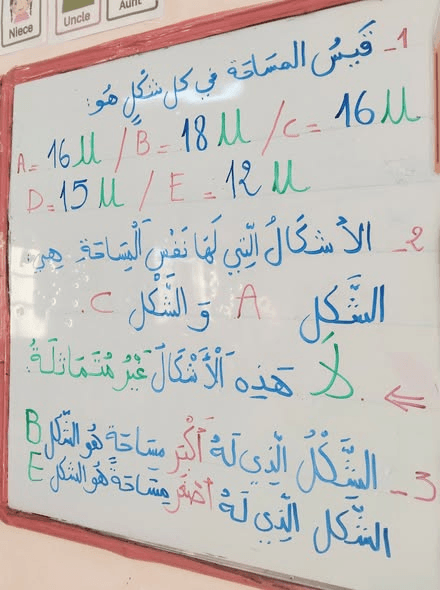 Niece
Uncle
Aunt
1- قَيْسُ المسَاحَة في كل شكْلٍ هُوَ:
A = 16 u / B = 18 u / C = 16 u
D = 15 u / E = 12 u
2- الأشكَالُ الّتِي لَهَا نَفْس الْمِسَاحَة هِيَ:
الشَّكل A وَ الشَّكْل C.
⇐ لَا هَذِه الْأَشْكَالَ غَيْرُ مُتَمَاثلَةُ.
3- الشَّكْلُ الّذِي لَهُ أَكْبَر مِسَاحَة هُوَ الشّكل B
الشّكل الّذِي لَهُ أصْغَر مِسَاحَة هُوَ الشكل E